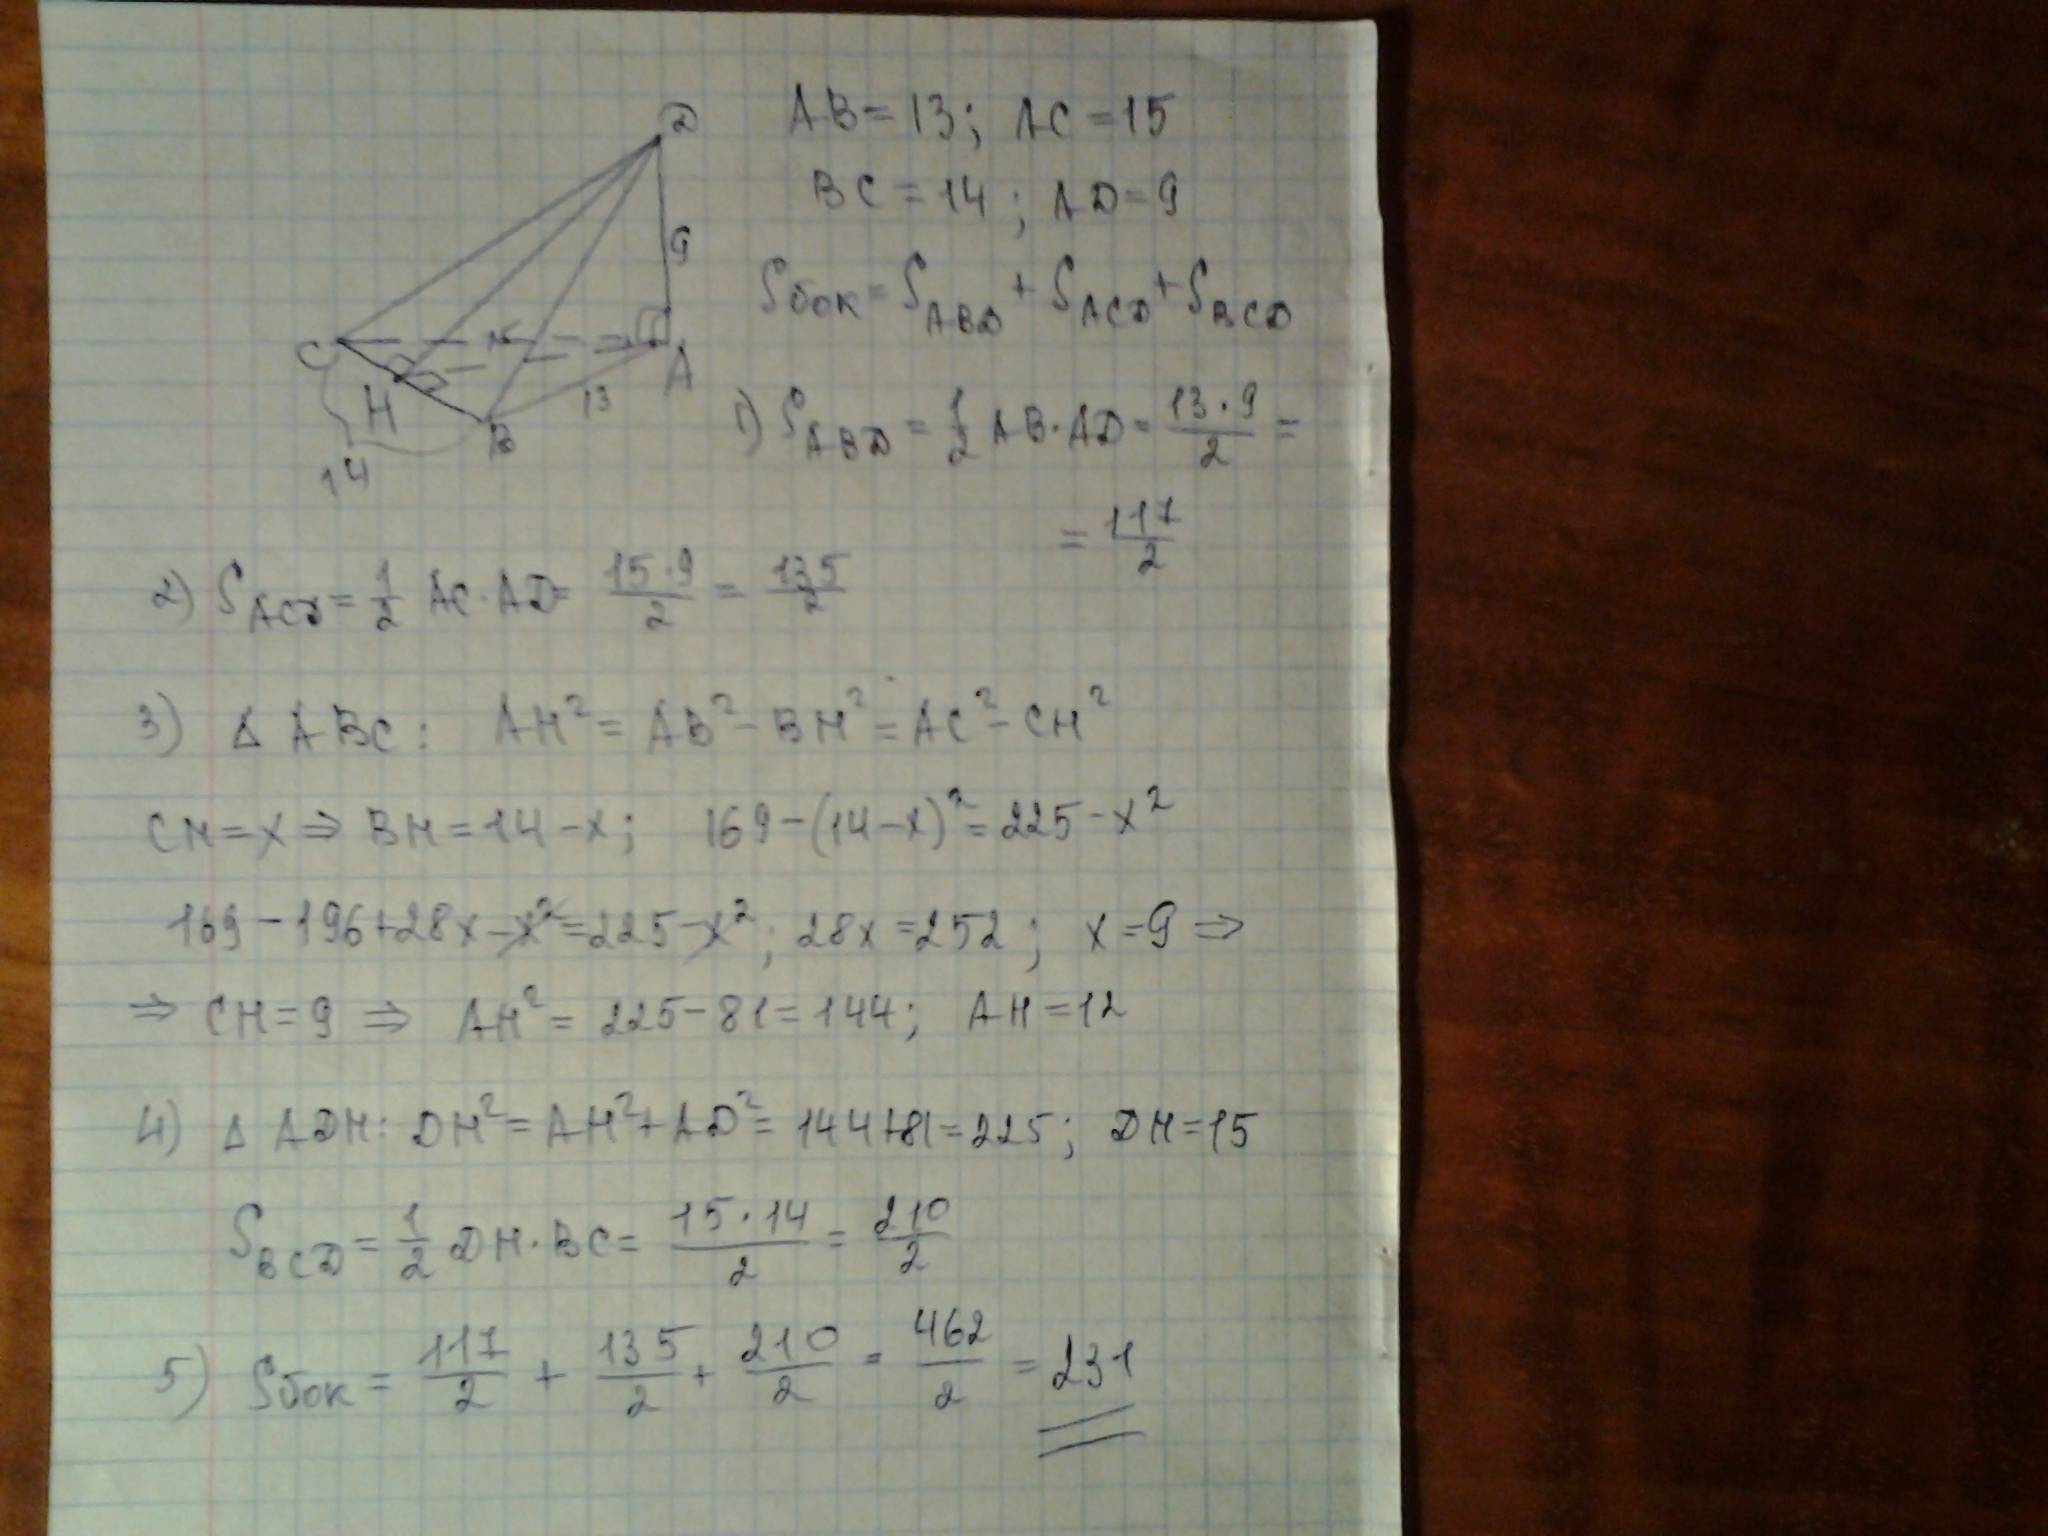 D
9
C
15
A
H
13
B
14
AB = 13; AC = 15
BC = 14; AD = 9
Sбок = S_ABD + S_ACD + S_BCD
1) S_ABD = 1/2 AB · AD = 13 · 9 / 2 =
= 117/2
2) S_ACD = 1/2 AC · AD = 15 · 9 / 2 = 135/2
3) Δ ABC: AH² = AB² - BH² = AC² - CH²
CH = x ⇒ BH = 14 - x; 169 - (14 - x)² = 225 - x²
169 - 196 + 28x - x² = 225 - x²; 28x = 252; x = 9 ⇒
⇒ CH = 9 ⇒ AH² = 225 - 81 = 144; AH = 12
4) Δ ADH: DH² = AH² + AD² = 144 + 81 = 225; DH = 15
S_BCD = 1/2 DH · BC = 15 · 14 / 2 = 210/2
5) Sбок = 117/2 + 135/2 + 210/2 = 462/2 = 231